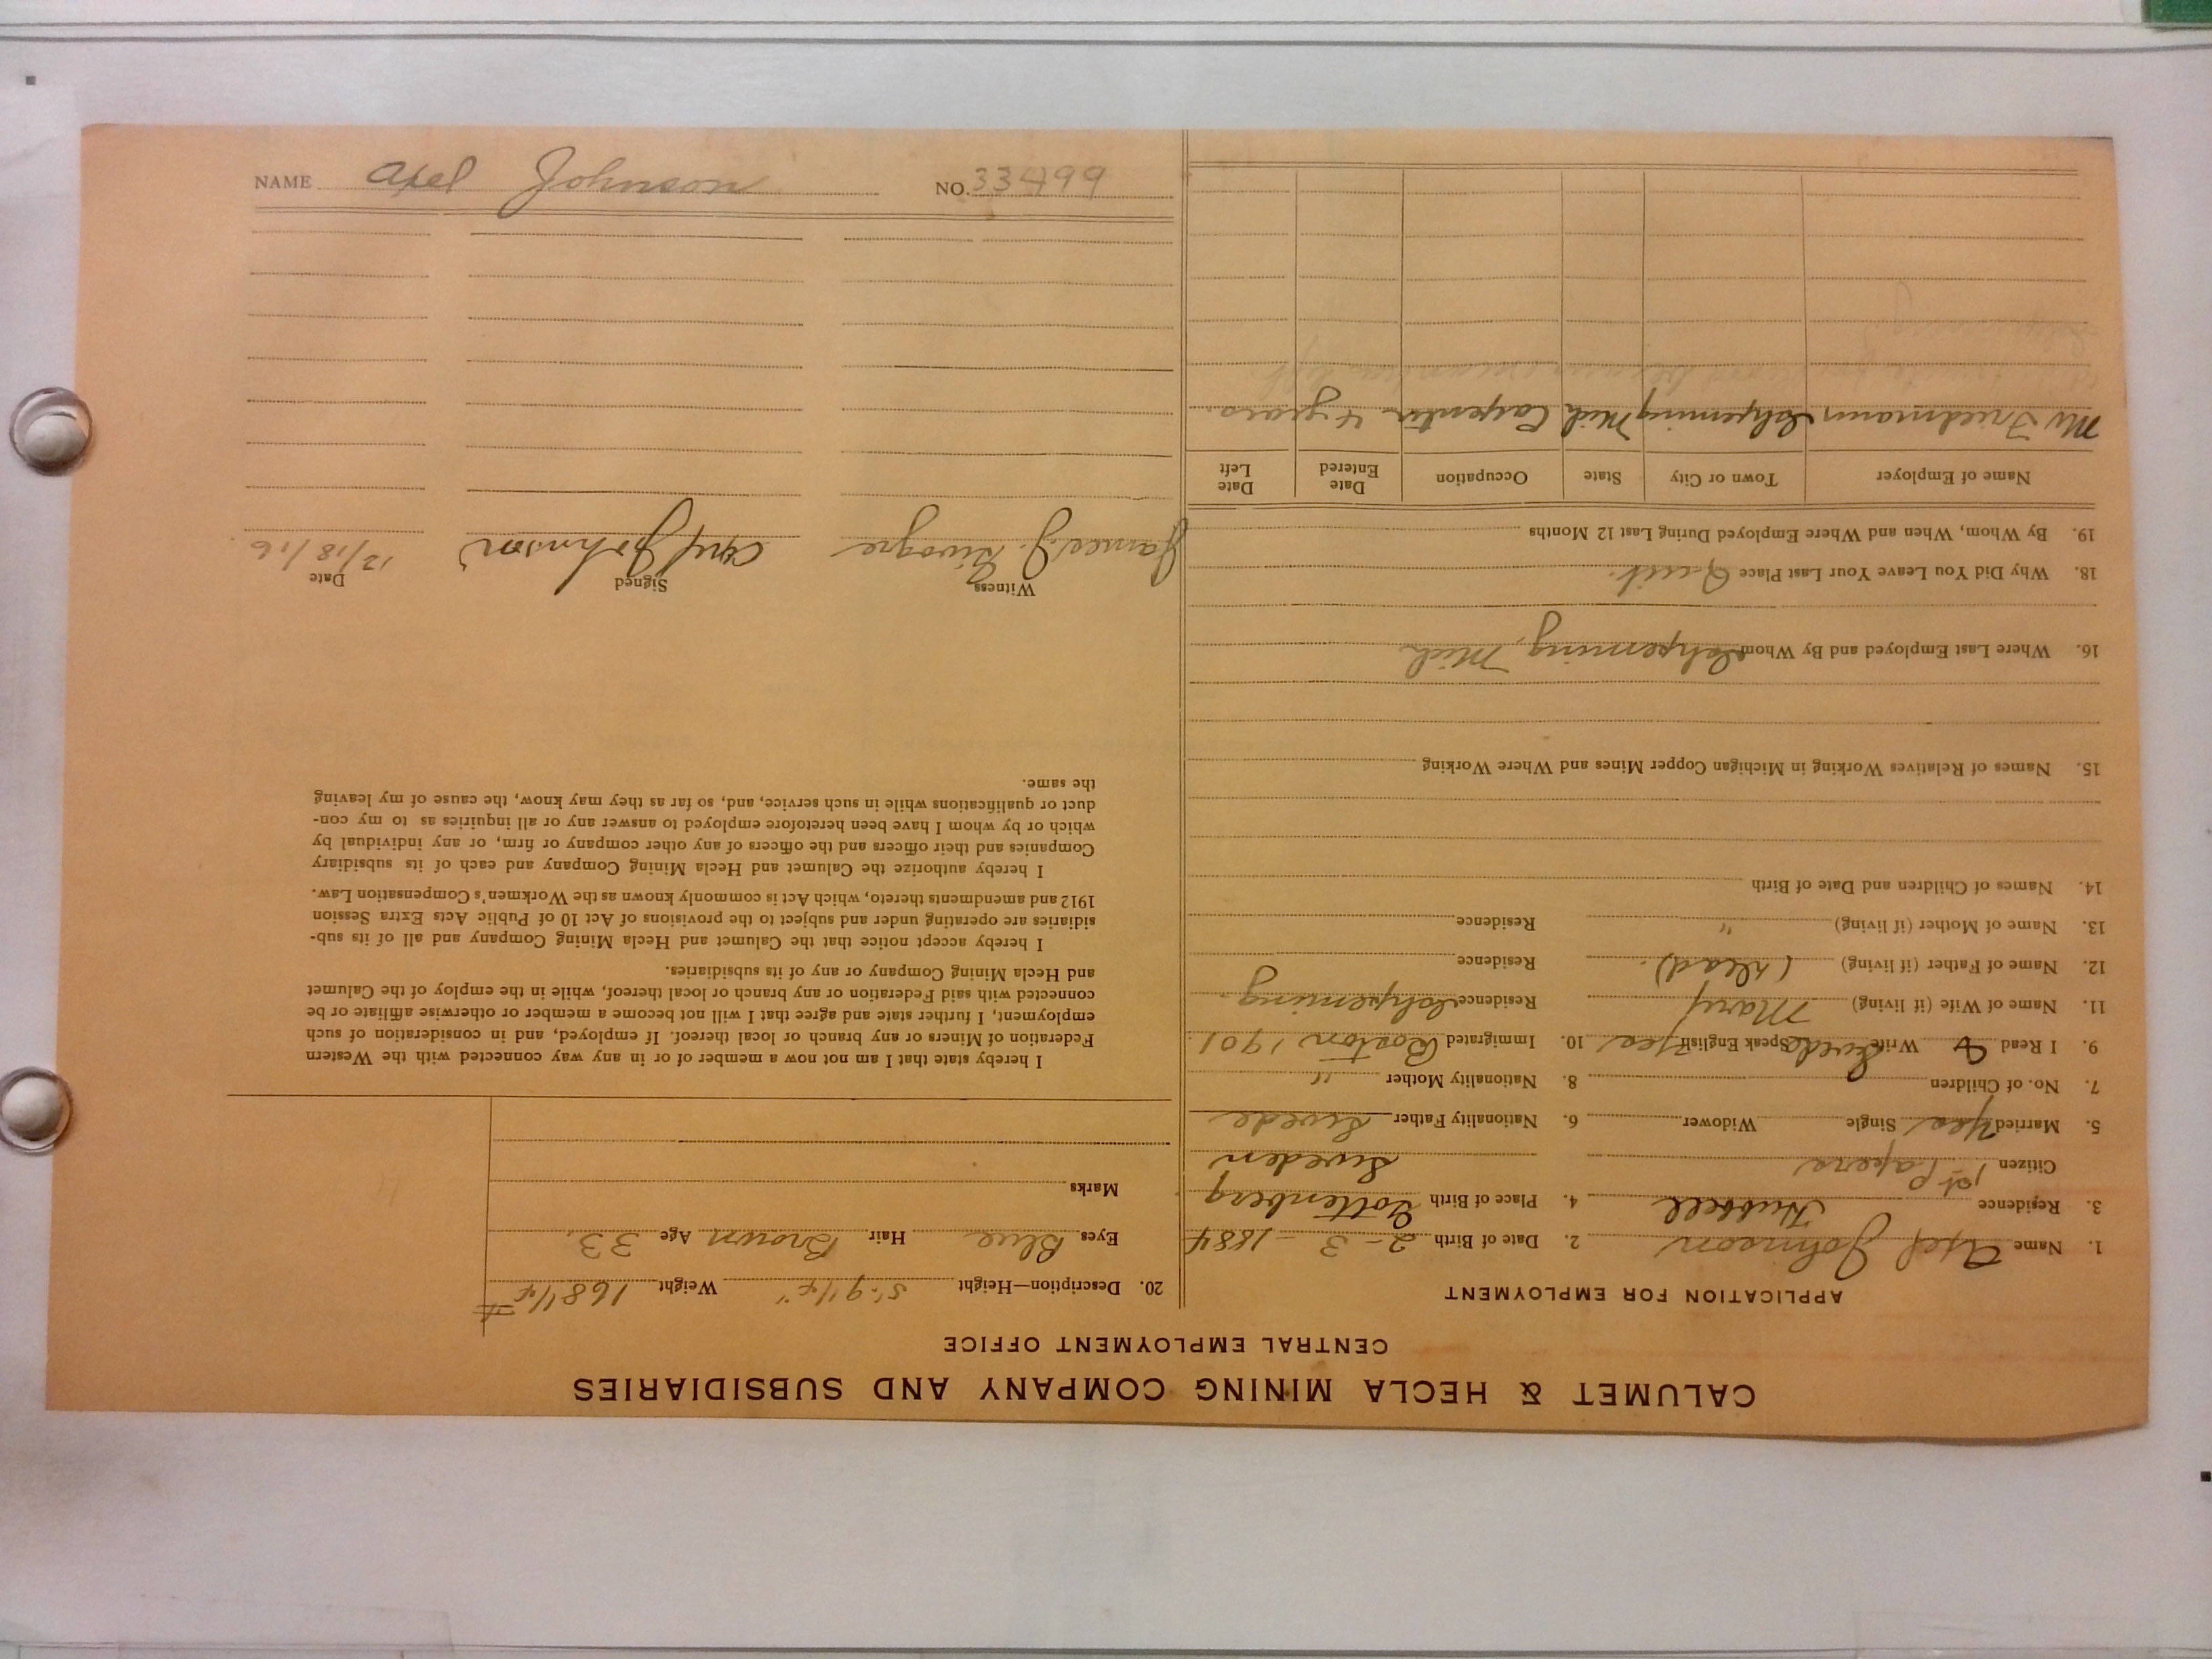 NAME Axel Johnson NO. 33499
CALUMET & HECLA MINING COMPANY AND SUBSIDIARIES
CENTRAL EMPLOYMENT OFFICE
APPLICATION FOR EMPLOYMENT
1. Name Axel Johnson 2. Date of Birth 2 - 3 - 1884
3. Residence Hubbell 4. Place of Birth Gottenberg
Citizen 1st Papers Sweden
5. Married Yes Single Widower 6. Nationality Father Swede
7. No. of Children 8. Nationality Mother "
9. I Read & Write Swede Speak English Yes 10. Immigrated Boston 1901
11. Name of Wife (if living) Mary Residence Ishpeming
12. Name of Father (if living) (dead). Residence
13. Name of Mother (if living) " Residence
14. Names of Children and Date of Birth
15. Names of Relatives Working in Michigan Copper Mines and Where Working
16. Where Last Employed and By Whom Ishpeming, Mich
18. Why Did You Leave Your Last Place Quit.
19. By Whom, When and Where Employed During Last 12 Months
Name of Employer Town or City State Occupation Date Entered Date Left
Mr Friedmann Ishpeming Mich Carpenter 4 years.
20. Description—Height 5'-9 1/4" Weight 168 1/4 #
Eyes Blue Hair Brown Age 33.
Marks
I hereby state that I am not now a member of or in any way connected with the Western
Federation of Miners or any branch or local thereof. If employed, and in consideration of such
employment, I further state and agree that I will not become a member or otherwise affiliate or be
connected with said Federation or any branch or local thereof, while in the employ of the Calumet
and Hecla Mining Company or any of its subsidiaries.
I hereby accept notice that the Calumet and Hecla Mining Company and all of its sub-
sidiaries are operating under and subject to the provisions of Act 10 of Public Acts Extra Session
1912 and amendments thereto, which Act is commonly known as the Workmen's Compensation Law.
I hereby authorize the Calumet and Hecla Mining Company and each of its subsidiary
Companies and their officers and the officers of any other company or firm, or any individual by
which or by whom I have been heretofore employed to answer any or all inquiries as to my con-
duct or qualifications while in such service, and, so far as they may know, the cause of my leaving
the same.
Witness Signed Date
James J. Axel Johnson 12/18/16